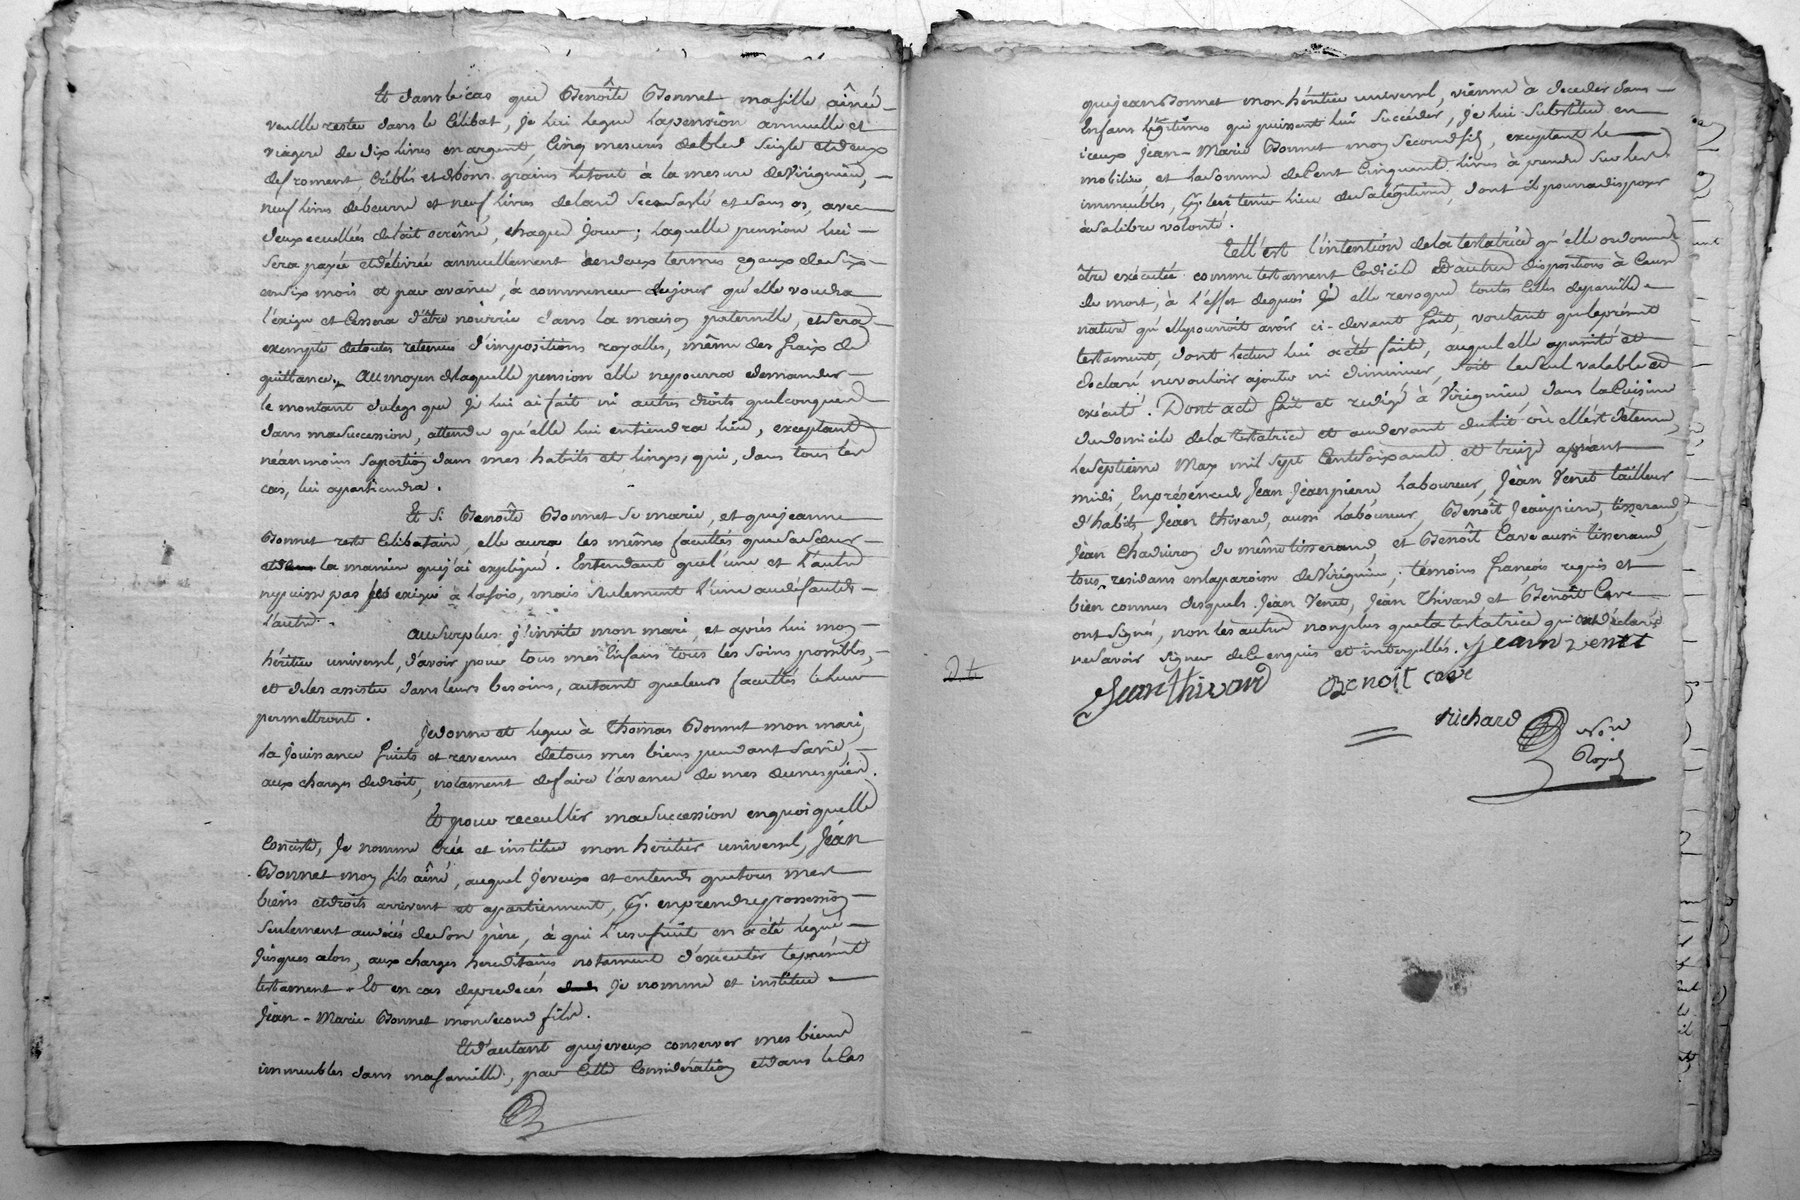 Et dans le cas que Benoîte Bonnet ma fille aînée
veuille rester dans le Célibat, je lui legue la pension annuelle et
viagere de dix livres en argent, Cinq mesures de bled seigle et deux
de froment, criblés et bons grains le tout à la mesure de Virignieu,
neuf livres de beurre et neuf livres de lard sec salé et sans os, avec
deux ecuellés de lait ecrêmé, chaque jour ; laquelle pension lui
sera payée et delivrée annuellement en deux termes egaux de six
en six mois et par avance, à commencer du jour qu'elle voudra
l'exiger et Cessera d'être nourrie dans la maison paternelle, et sera
exempte de toutes retenues d'impositions royalles, même des fraix de
quittance. Au moyen de laquelle pension elle ne pourra demander
le montant du legs que je lui ai fait ni autres droits quelconques
dans ma succession, attendu qu'elle lui entiendra lieu, exceptant
néanmoins sa portion dans mes habits et linges, qui, dans tous les
cas, lui apartiendra.
Et si Benoîte Bonnet se marie, et que jeanne
Bonnet reste Celibataire, elle aura les mêmes facultés que sa sœur
la maniere que j'ai expliqué. Entendant que l'une et l'autre
ne puisse pas les exiger à la fois, mais seulement l'une au defaut de
l'autre.
Au surplus j'invite mon mari, et après lui mon
héritier universel, d'avoir pour tous mes Enfans tous les soins possibles,
et de les assister dans leurs besoins, autant que leurs facultés le leur
permettront.
Je donne et legue à Thomas Bonnet mon mari
la jouissance fruits et revenus de tous mes biens pendant sa vie,
aux charges de droit, notament de faire l'avance de mes
Et pour receullir ma succession en quoi quelle
Conciste, Je nomme Crée et institue mon héritier universel, Jean
Bonnet mon fils aîné, auquel je veux et entends que tous mes
biens et droits arrivent et apartiennent, en prendre possession
seulement au décés de son père, à qui l'usufruit en a été légué
Jusques alors, aux charges hereditaires notament d'exécuter le présent
testament. Et en cas de predecés je nomme et institue
Jean-Marie Bonnet mon second fils.
Et d'autant que je veux conserver mes biens
immeubles dans ma famille, par Cette Considération et dans le Cas
que jean Bonnet mon héritier universel, vienne à deceder sans
Enfans légitimes qui puissent lui succéder, Je lui substitue en
iceux Jean-Marie Bonnet mon second fils, exceptant le
mobilier, et la somme de Cent Cinquante livres à prendre sur les
immeubles, tenir lieu de sa légitime, dont il pourra disposer
à sa libre volonté.
Tell'est l'intention de la testatrice qu'elle ordonne
être exécutée comme testament Codicile et autre dispositions à Cause
de mort, à l'effet de quoi elle revoque toutes Celles de pareille
nature qu'elle pourroit avoir ci-devant fait, voulant que le présent
testament, dont lecture lui a été faite, auquel elle a persisté et
declaré ne vouloir ajouter ni diminuer, soit le seul valable et
exécuté. Dont acte fait et redigé à Virignieu, dans la Cuisine
du domicile de la testatrice et au devant du lit où elle est detenue
le septieme May mil sept Cent soixante et treize après
midi, En présence de Jean Jeanpierre Laboureur, Jean Venet tailleur
d'habits Jean thivard, aussi Laboureur, Benoît Jeanpierre, tisserand
Jean Chadviron de même tisserand, et Benoît Cave aussi tisserand,
tous residans en la paroisse de Virignieu, témoins françois requis et
bien connus desquels Jean Venet, Jean Thivard et Benoît Cave
ont signés, non les autres non plus que la testatrice qui ont déclarés
ne savoir signer de Ce enquis et interpellés. jean venet
Jean thivard Benoit cave
Richard Nore
Royal